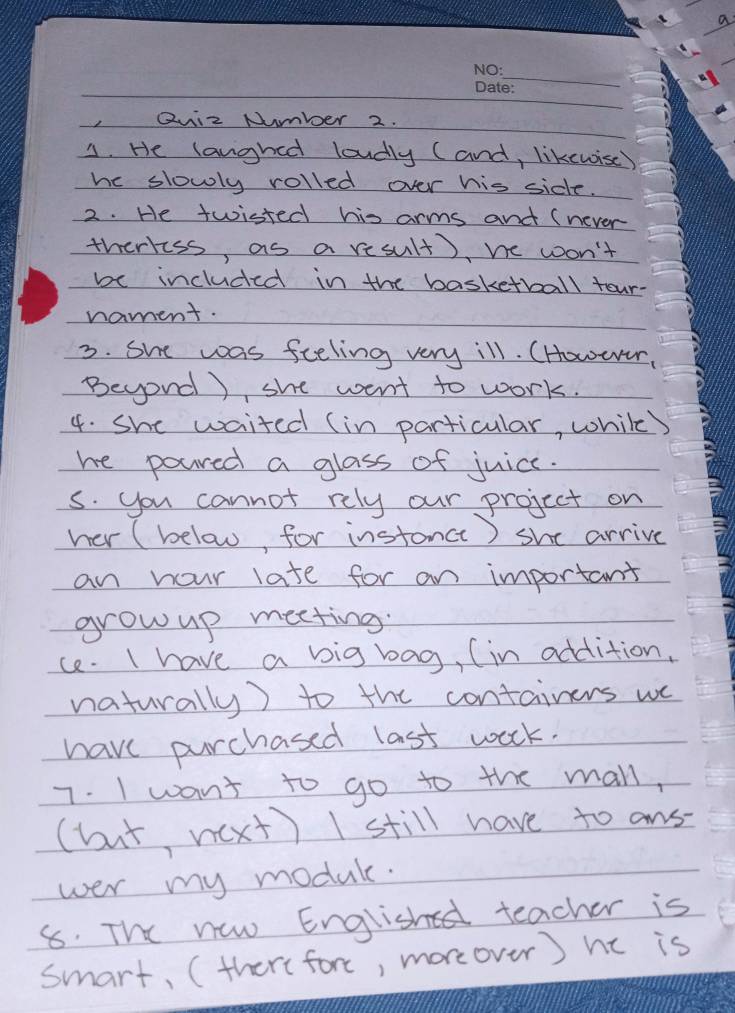 NO:
Date:
Quiz Number 2.
1. He laughed loudly (and, likewise)
he slowly rolled over his side.
2. He twisted his arms and (never-
therless, as a result), he won't
be included in the basketball tour-
nament.
3. She was feeling very ill. (However,
Beyond), she went to work.
4. She waited (in particular, while)
he poured a glass of juice.
5. You cannot rely our project on
her (below, for instance) she arrive
an hour late for an important
growup meeting.
6. I have a big bag, (in addition,
naturally) to the containers we
have purchased last week.
7. I want to go to the mall,
(but, next) I still have to ans-
wer my module.
8. The new Englished teacher is
smart, (therefore, moreover) he is
a